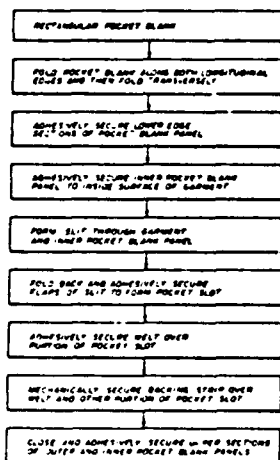 RECTANGULAR POCKET BLANK
FOLD POCKET BLANK ALONG BOTH LONGITUDINAL
EDGES AND THEN FOLD TRANSVERSELY
ADHESIVELY SECURE LOWER EDGE
SECTIONS OF POCKET BLANK PANEL
ADHESIVELY SECURE INNER POCKET BLANK
PANEL TO INSIDE SURFACE OF GARMENT
FORM SLIT THROUGH GARMENT
AND INNER POCKET BLANK PANEL
FOLD BACK AND ADHESIVELY SECURE
FLAPS OF SLIT TO FORM POCKET SLOT
ADHESIVELY SECURE WELT OVER
PORTION OF POCKET SLOT
MECHANICALLY SECURE BACKING STRIP OVER
WELT AND OTHER PORTION OF POCKET SLOT
CLOSE AND ADHESIVELY SECURE UPPER SECTIONS
OF OUTER AND INNER POCKET BLANK PANELS